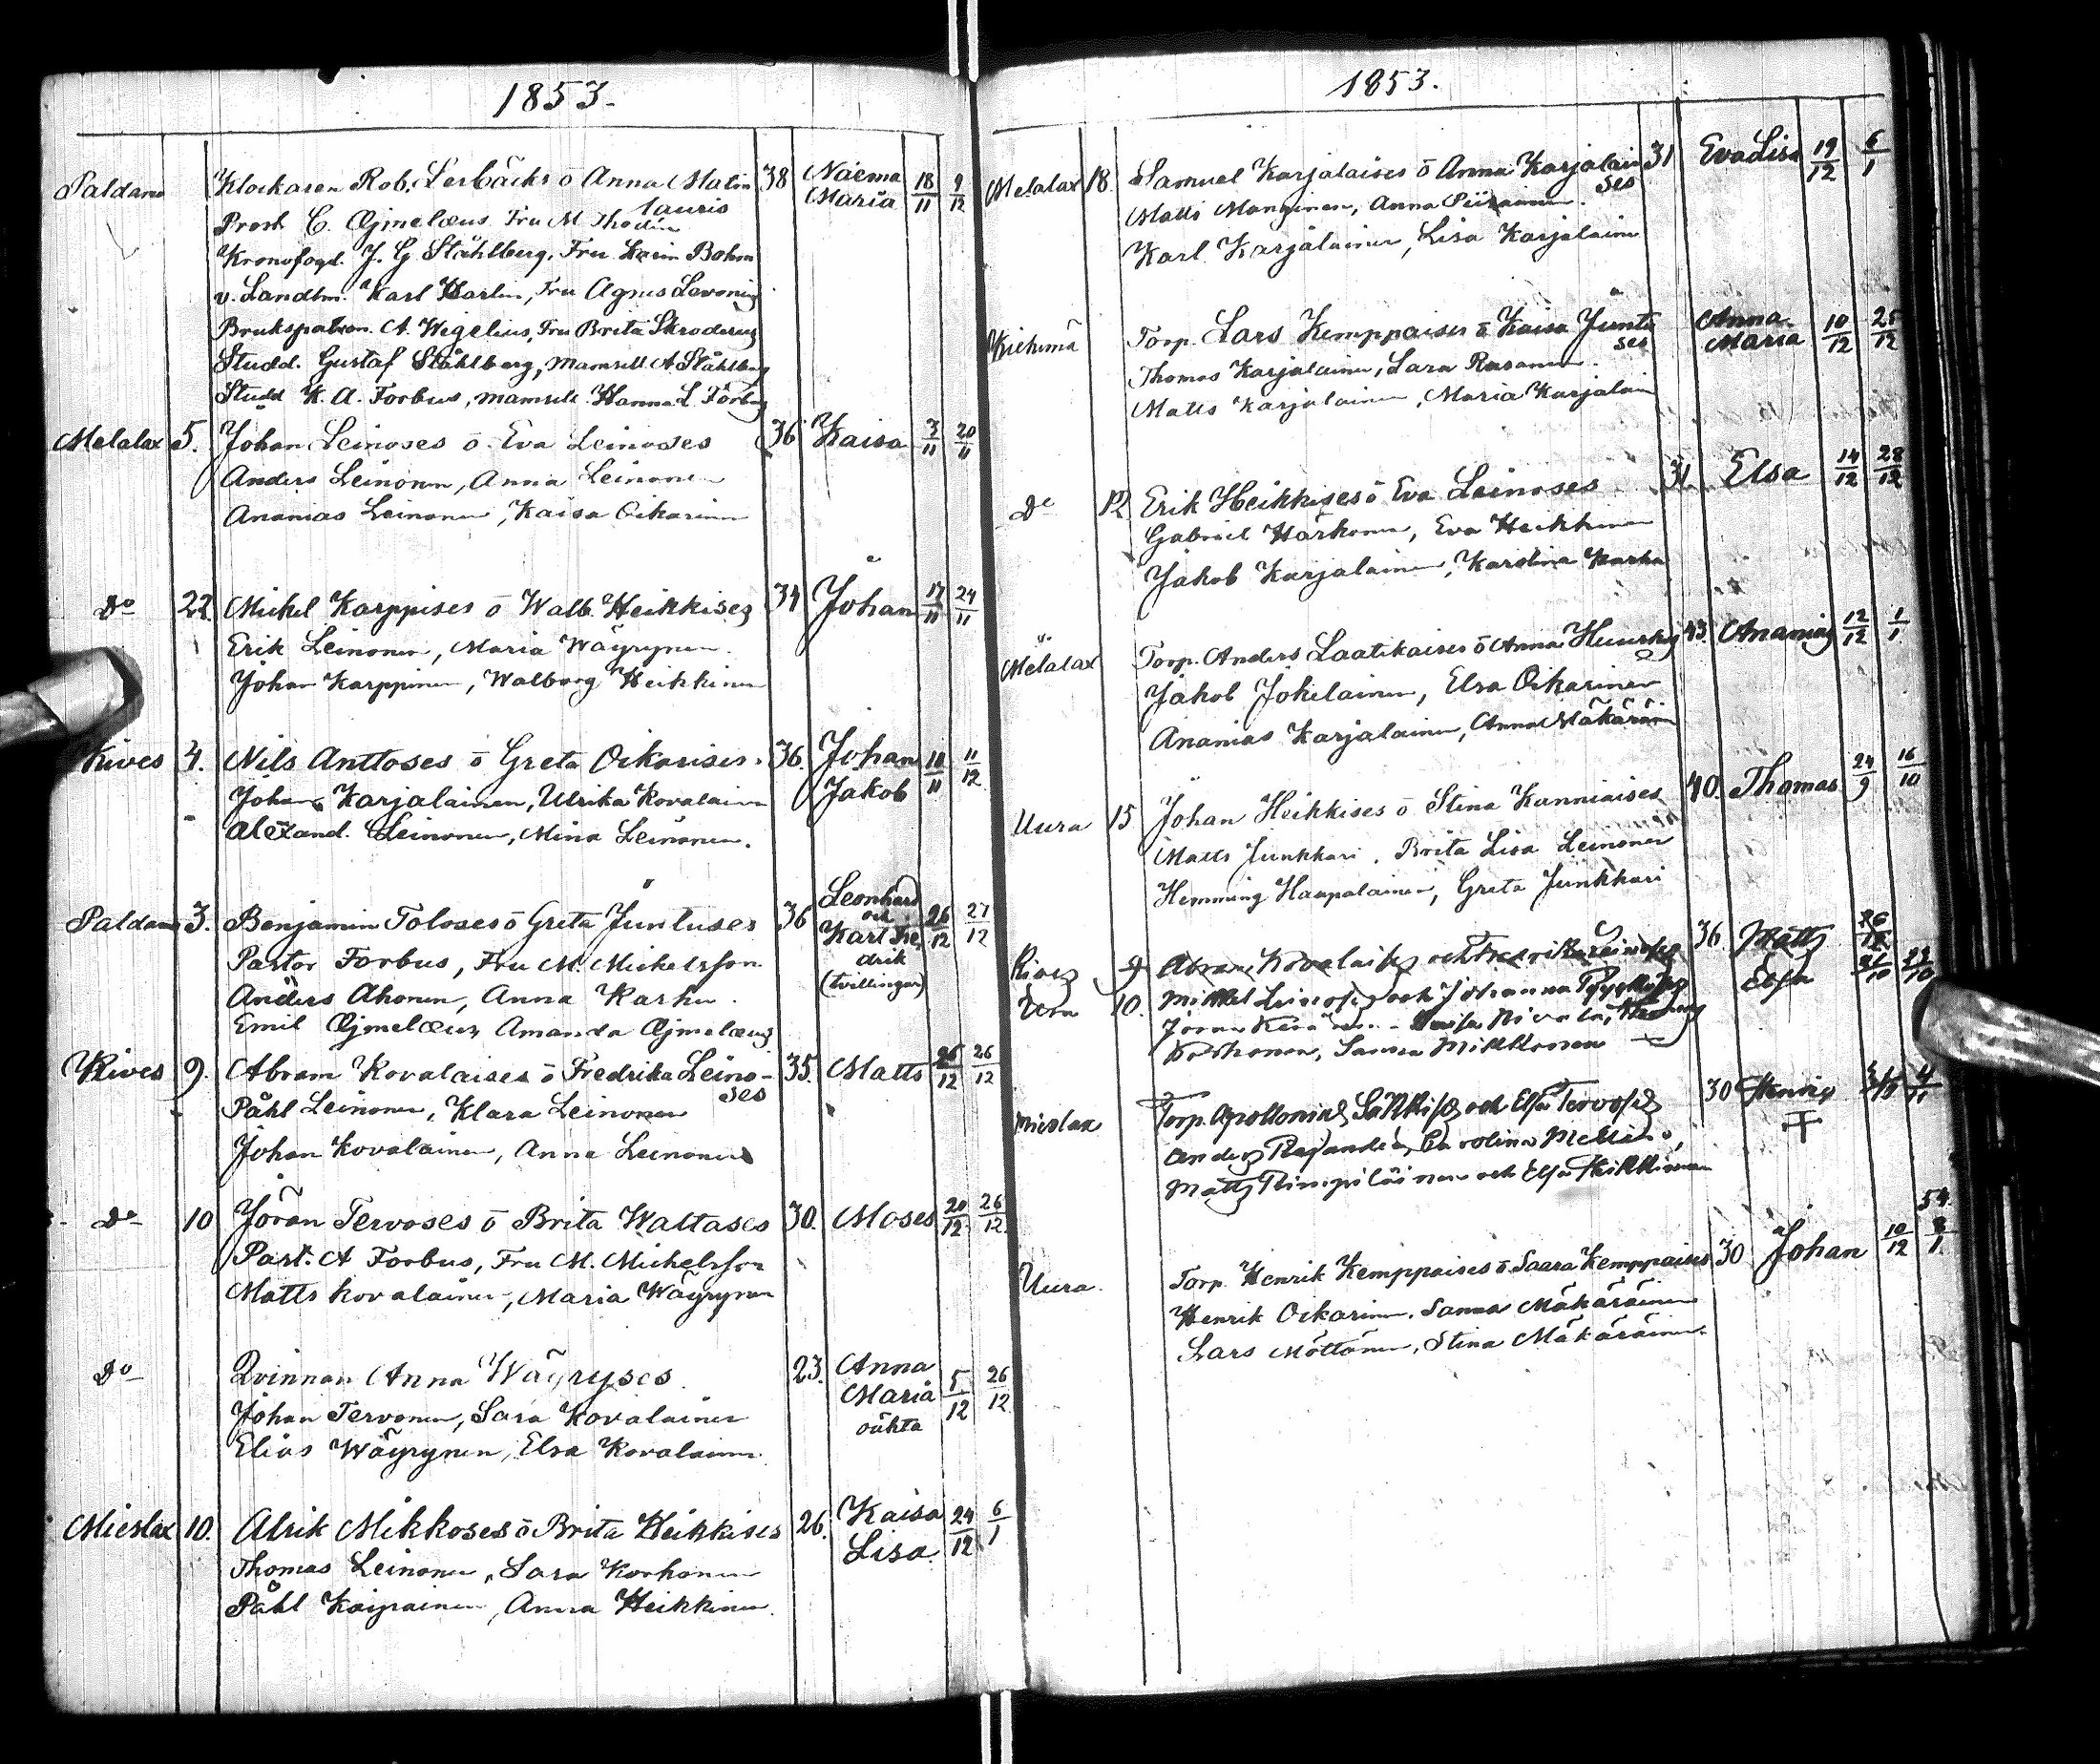 1853.
Paldamo Klockaren Rob. Lerbäcks o Anna Malin 38 Naema 18/11 9/12
lauris Maria
Prost C. Ajmelæus Fru M Thodin
Kronofogd. J. G Ståhlberg, Fru Karin Bohm
v. Landtm. Karl Harlin, Fru Agnes
Brukspatron. A. Wigelius, Fru Brita
Studd. Gustaf Ståhlberg, Mamsell A. Ståhlberg
Studd K. A. Forbus, mamsell Hanna L. Forbus
Melalax 5. Johan Leinoses o Eva Leinoses 36 Kaisa 3/11 20/11
Anders Leinonen, Anna Leinonen
Ananias Leinonen, Kaisa Oikarinen
Do 22. Mickel Karppises o Walb. Heikkises 34 Johan 17/11 24/11
Erik Leinonen, Maria Wäyrynen.
Johan Karppinen, Walborg Heikkinen
Kives 4. Nils Anttoses o Greta Oikarises. 36. Johan 18/11 11/12
Johan Karjalainen, Ulrika Kovalainen Jakob
Alexand. Leinonen, Mina Leinonen.
Paldamo 3. Benjamin Toloses o Greta Juntuses 36 Leonhard 26/12 27/12
och
Pastor Forbus, Fru M. Michelsson Karl Fre
drik
Anders Ahonen, Anna Karhu. (tvillingar)
Emil Ajmelæus, Amanda Ajmelæus
Kives 9. Abram Kovalaises o Fredrika Leino- 35. Matts 26/12 26/12
ses
Påhl Leinonen, Klara Leinonen
Johan Kovalainen, Anna Leinonen
Do 10 Jöran Tervoses o Brita Waltases 30. Moses 20/12 26/12
Past. A Forbus, Fru M. Michelsson
Matts Kovalainen, Maria Wäyrynen
Do Qvinnan Anna Wäyryses 23. Anna 5/12 26/12
Maria
Johan Tervonen, Sara Kovalainen oäkta
Elias Wäyrynen, Elsa Kovalainen.
Mieslax 10. Alrik Mikkoses o Brita Heikkises 26. Kaisa 24/12 6/1
Lisa
Thomas Leinonen, Sara Korhonen
Påhl Kaipainen, Anna Heikkinen.
1853.
Melalax 18. Samuel Karjalaises o Anna Karjalai 31 Eva Lisa 19/12 6/1
ses
Matts Manninen, Anna Piirainen.
Karl Karjalainen, Lisa Karjalainen
Kiehimä Torp. Lars Kemppaises o Kaisa Juntu Anna 10/12 25/12
ses Maria
Thomas Karjalainen, Sara Rasanen.
Matts Karjalainen, Maria Karjalain
Do 12 Erik Heikkises o Eva Leinoses 31. Elsa 14/12 28/12
Gabriel Härkonen, Eva Heikkinen
Jakob Karjalainen, Karolina Karhu
Melalax Torp. Anders Laatikaises o Anna 43. Ananias 12/12 1/1
Jakob Jokelainen, Elsa Oikarinen
Ananias Karjalainen, Anna Mäkäräin
Uura 15 Johan Heikkises o Stina Kanniaises 40. Thomas 24/9 16/10
Matts Junkkari. Brita Lisa Leinonen
Hemming Haapalainen, Greta Junkkari
Kives 9 Abram Kovalaises och Fredrika Leinoses 36. Matts 26/12
Uura 10. Mikkel Leinoses och Johanna Elsa 21/10 23/10
Jöran
Korhonen, Sanna Mikkonen
Mieslax Torp. Apollonius Särkkises och Elsa Tervoses 30 Henrik 4/11
Anders, Carolina
Matts Rimpiläinen och Elsa Heikkinen
54.
Uura. Torp. Henrik Kemppaises o Saara Kemppaises 30 Johan 10/12 8/1
Henrik Oikarinen. Sanna Mäkäräinen
Lars Möttönen, Stina Mäkäräinen.